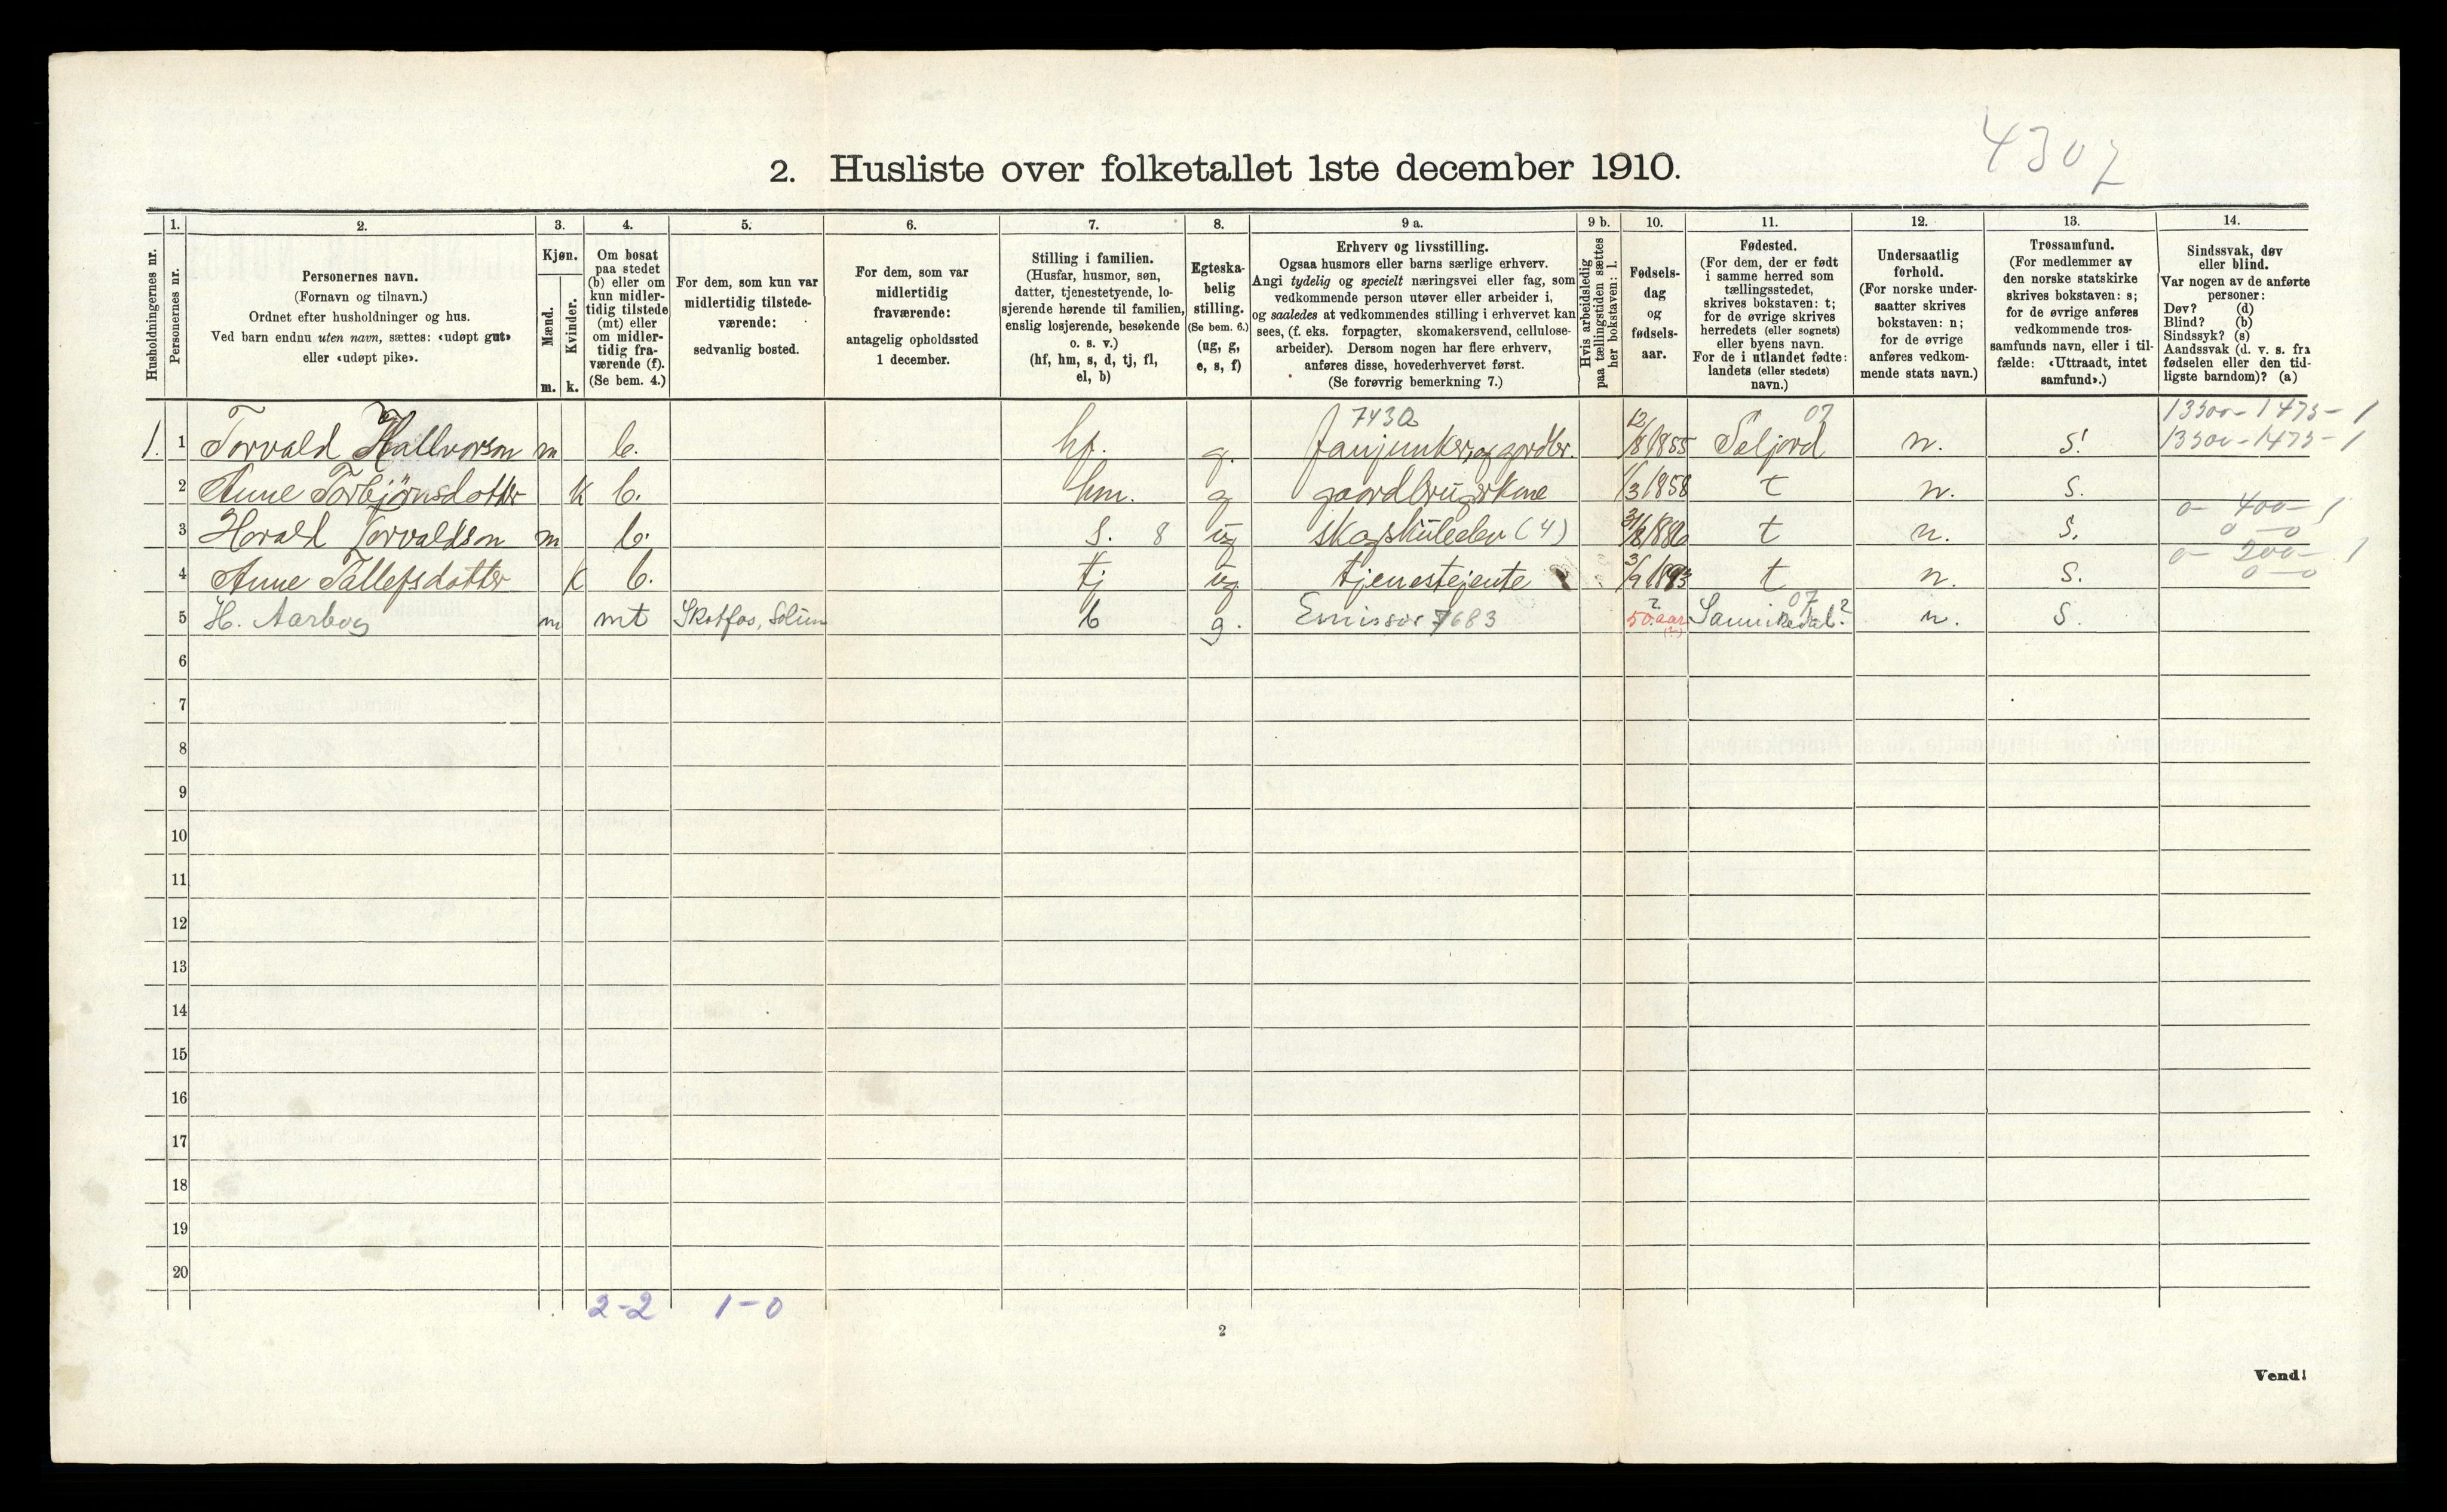 4307
2. Husliste over folketallet 1ste december 1910.
1. 2. 3. 4. 5. 6. 7. 8. 9 a. 9 b. 10. 11. 12. 13. 14.
Husholdningernes nr.
Personernes nr.
Personernes navn.
(Fornavn og tilnavn.)
Ordnet efter husholdninger og hus.
Ved barn endnu uten navn, sættes: «udøpt gut»
eller «udøpt pike».
Kjøn.
Mænd.
Kvinder.
m. k.
Om bosat
paa stedet
(b) eller om
kun midler-
tidig tilstede
(mt) eller
om midler-
tidig fra-
værende (f).
(Se bem. 4.)
For dem, som kun var
midlertidig tilstede-
værende:
sedvanlig bosted.
For dem, som var
midlertidig
fraværende:
antagelig opholdssted
1 december.
Stilling i familien.
(Husfar, husmor, søn,
datter, tjenestetyende, lo-
sjerende hørende til familien,
enslig losjerende, besøkende
o. s. v.)
(hf, hm, s, d, tj, fl,
el, b)
Egteska-
belig
stilling.
(Se bem. 6.)
(ug, g,
e, s, f)
Erhverv og livsstilling.
Ogsaa husmors eller barns særlige erhverv.
Angi tydelig og specielt næringsvei eller fag, som
vedkommende person utøver eller arbeider i,
og saaledes at vedkommendes stilling i erhvervet kan
sees, (f. eks. forpagter, skomakersvend, cellulose-
arbeider). Dersom nogen har flere erhverv,
anføres disse, hovederhvervet først.
(Se forøvrig bemerkning 7.)
Hvis arbeidsledig
paa tællingstiden sættes
her bokstaven: l.
Fødsels-
dag
og
fødsels-
aar.
Fødested.
(For dem, der er født
i samme herred som
tællingsstedet,
skrives bokstaven: t;
for de øvrige skrives
herredets (eller sognets)
eller byens navn.
For de i utlandet fødte:
landets (eller stedets)
navn.)
Undersaatlig
forhold.
(For norske under-
saatter skrives
bokstaven: n;
for de øvrige
anføres vedkom-
mende stats navn.)
Trossamfund.
(For medlemmer av
den norske statskirke
skrives bokstaven: s;
for de øvrige anføres
vedkommende tros-
samfunds navn, eller i til-
fælde: «Uttraadt, intet
samfund».)
Sindssvak, døv
eller blind.
Var nogen av de anførte
personer:
Døv? (d)
Blind? (b)
Sindssyk? (s)
Aandssvak (d. v. s. fra
fødselen eller den tid-
ligste barndom)? (a)
7430 07 13500-1475-1
1. 1 Torvald Hallvorson m b. hf. g. fanjunker, og gardbr. 12/8 1855 Seljord n. s! 13500-1475-1
2 Anne Torbjørnsdotter k b. hm. g gaardbrugerkone 1/3 1858 t n. s.
0- 400- 1
3 Horald Torvaldson m b. s. 8 ug skogskuleelev (4) 1886 t n. s. 0-0
0- 200- 1
4 Anne Tallefsdotter k b. tj ug tjenestejente 3/9 1893 t n. s. 0-0
07
5 H. Aarbog m mt Skotfos, Solum b g. Emissær 7683 50 aar (?) Sannikedal? n. s.
6
7
8
9
10
11
12
13
14
15
16
17
18
19
20
2-2 1-0
2
Vend!